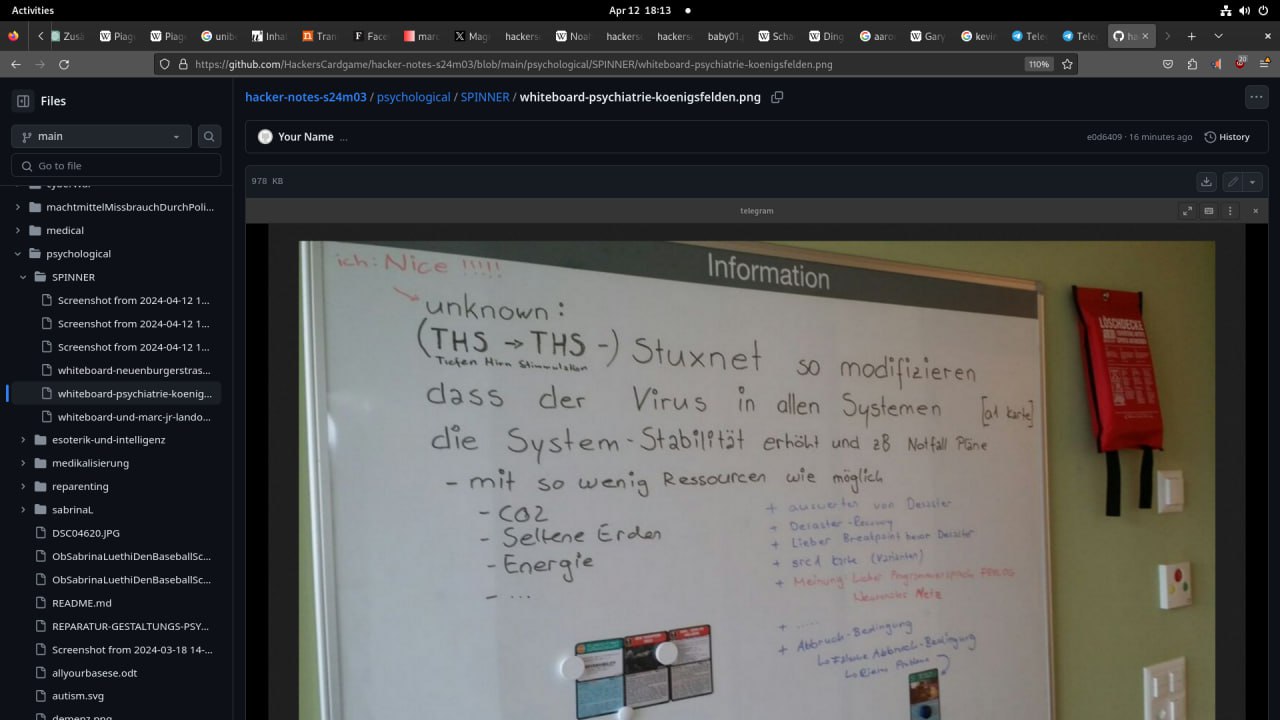 Activities
Apr 12 18:13
Zusä
Piag
Piag
unib
Inha
Tran
Face
marc
Mag
hackers
Noah
hackers
hackers
baby01.
Scha
Ding
aaro
Gary
kevin
Tele
Tele
ha
https://github.com/HackersCardgame/hacker-notes-s24m03/blob/main/psychological/SPINNER/whiteboard-psychiatrie-koenigsfelden.png
110%
20
Files
main
Go to file
cyberwar
machtmittelMissbrauchDurchPoli...
medical
psychological
SPINNER
Screenshot from 2024-04-12 1...
Screenshot from 2024-04-12 1...
Screenshot from 2024-04-12 1...
whiteboard-neuenburgerstras...
whiteboard-psychiatrie-koenig...
whiteboard-und-marc-jr-lando...
esoterik-und-intelligenz
medikalisierung
reparenting
sabrinaL
DSC04620.JPG
ObSabrinaLuethiDenBaseballSc...
ObSabrinaLuethiDenBaseballSc...
README.md
REPARATUR-GESTALTUNGS-PSY...
Screenshot from 2024-03-18 14-...
allyourbasese.odt
autism.svg
demenz.png
hacker-notes-s24m03 / psychological / SPINNER / whiteboard-psychiatrie-koenigsfelden.png
Your Name ...
e0d6409 · 16 minutes ago
History
978 KB
telegram
Information
ich: Nice !!!!!
unknown:
(THS → THS -) Stuxnet so modifizieren
Tiefen Hirn Stimulation
dass der Virus in allen Systemen [at karte]
die System-Stabilität erhöht und zB Notfall Pläne
- mit so wenig Ressourcen wie möglich
- CO2
- Seltene Erden
- Energie
- ...
+ auswerten von Desaster
+ Desaster-Recovery
+ Lieber Breakpoint bevor Desaster
+ srcd karte (Varianten)
+ Meinung: Lieber Programmiersprache PROLOG
Neuronales Netz
+ .....
+ Abbruch-Bedingung
Abbruch-Bedingung
Probleme
LÖSCHDECKE